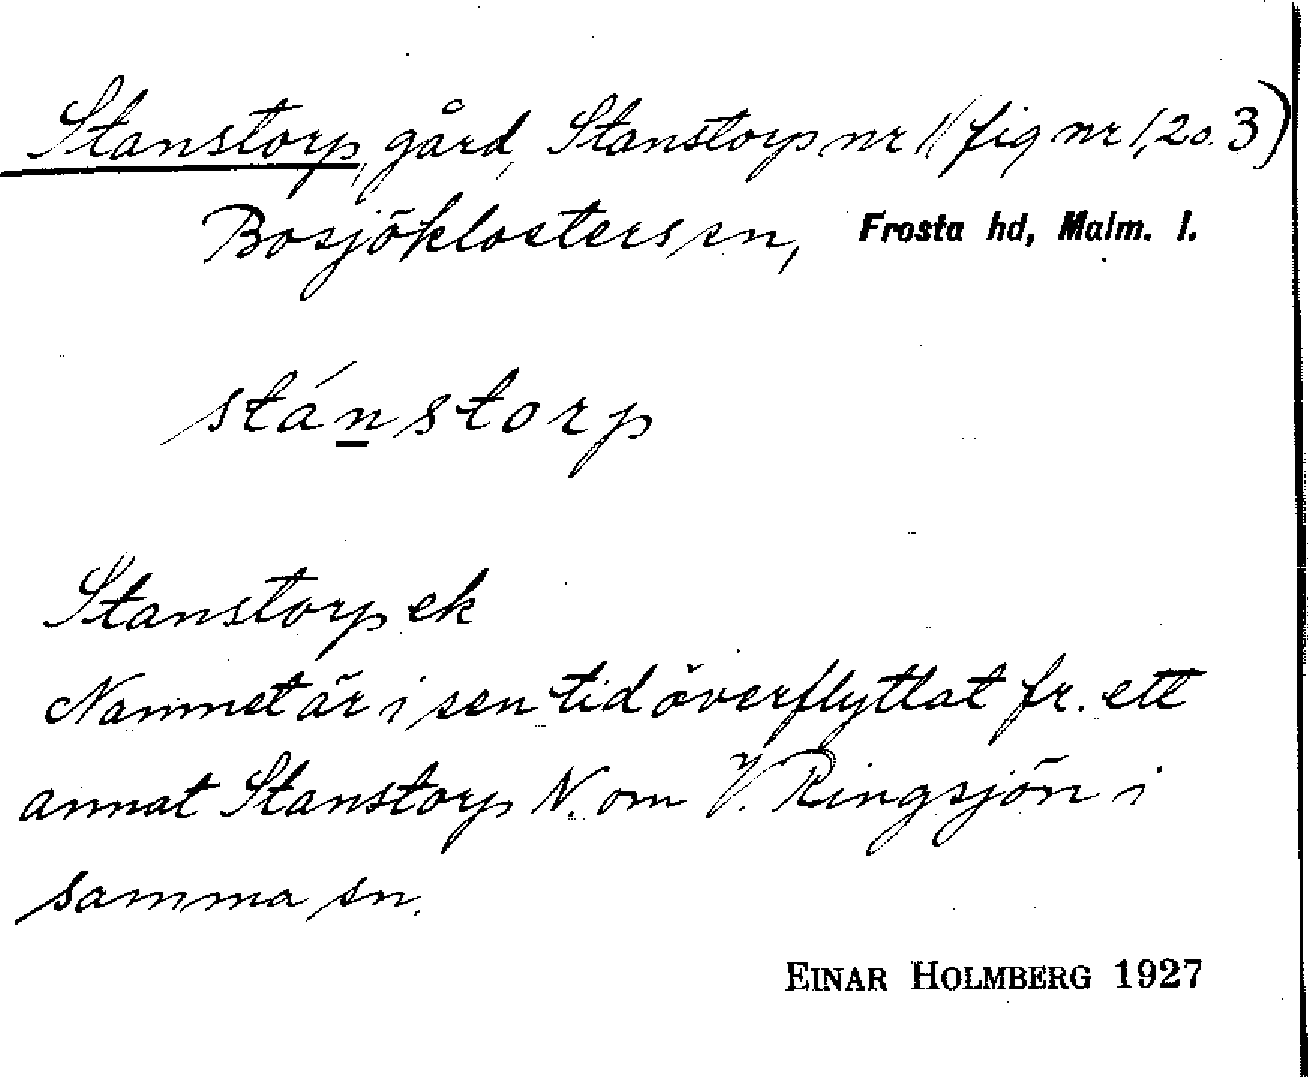 Stanstorp, gård, Stanstorp nr 1 (fig nr 1, 2 o. 3)
Bosjöklosters sn, Frosta hd, Malm. l.
stánstorp
Stanstorp ek
Namnet är i sen tid överflyttat fr. ett
annat Stanstorp N. om V. Ringsjön i
samma sn.
EINAR HOLMBERG 1927